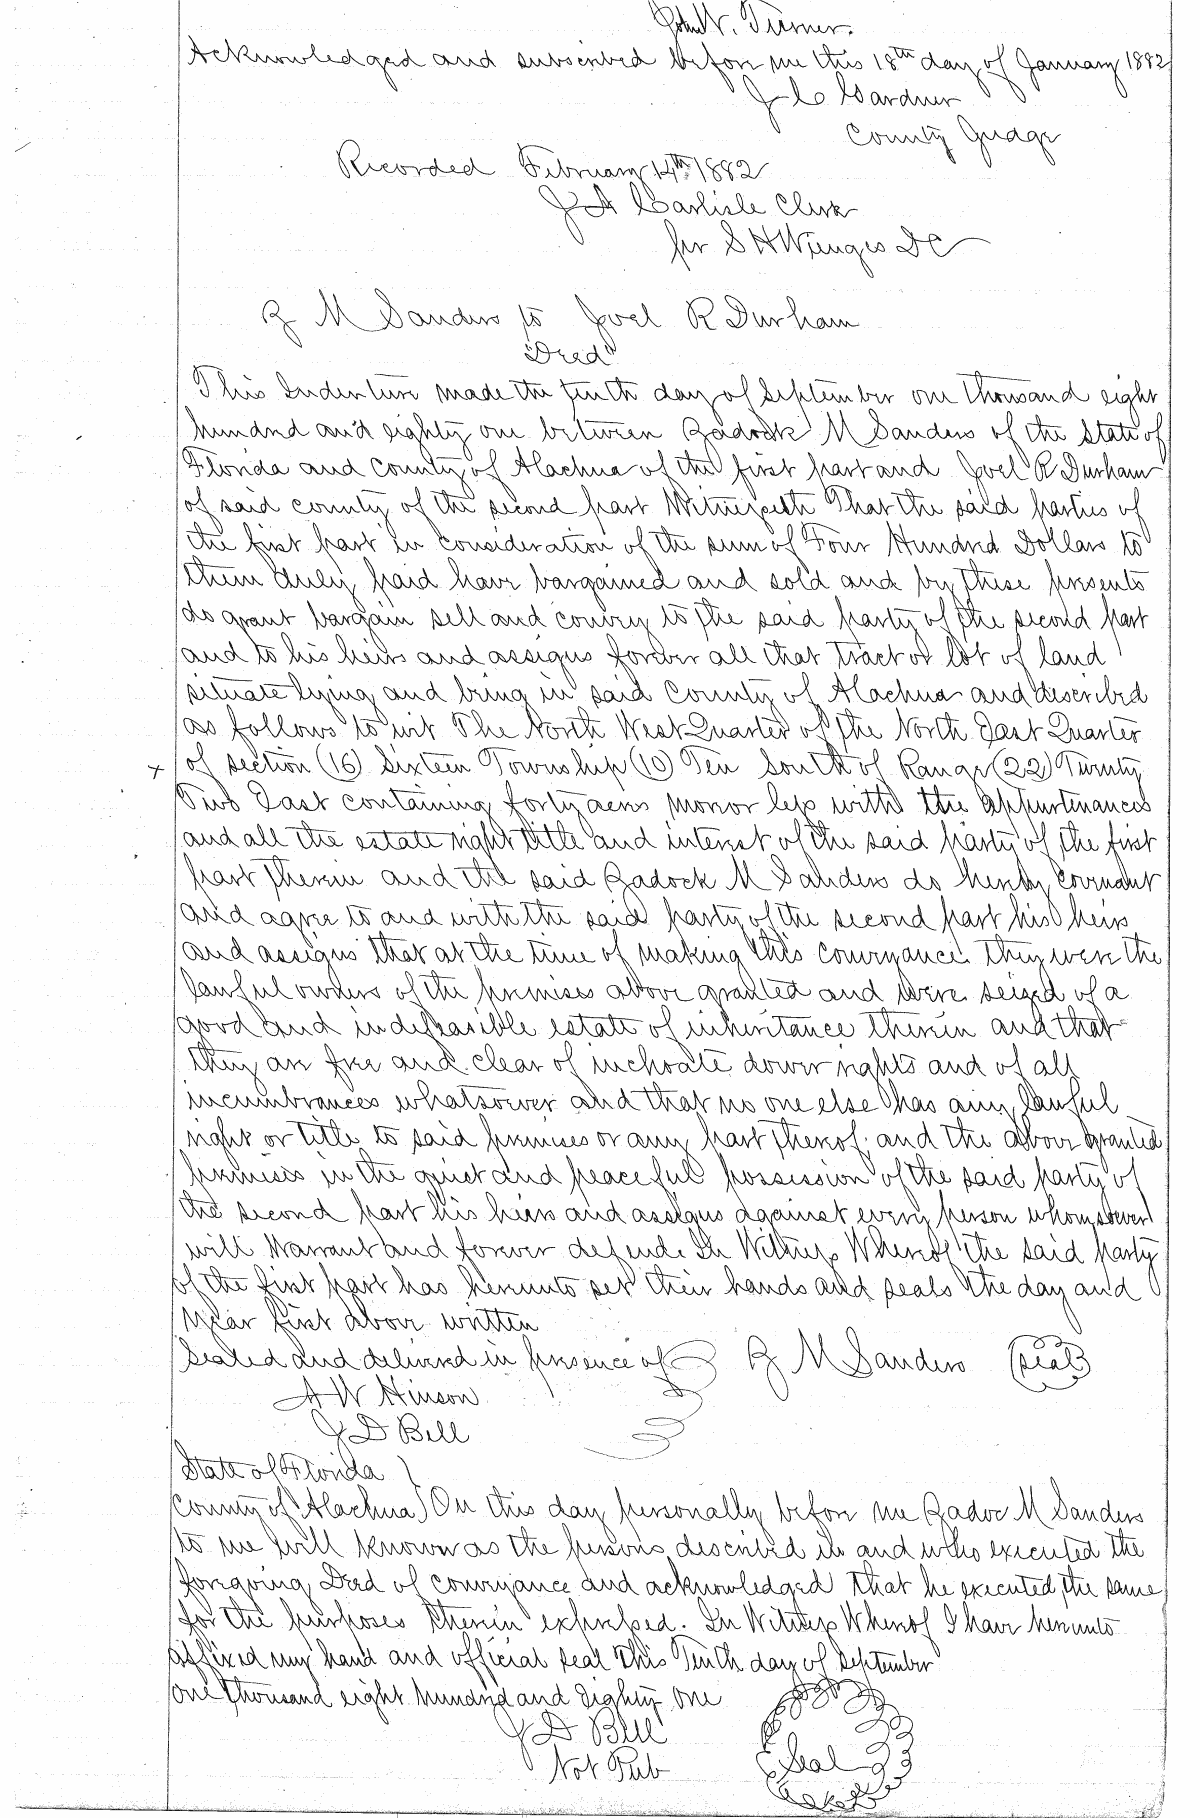 John W. Turner.
Acknowledged and subscribed before me this 18th day of January 1882
J C Gardner
County Judge
Recorded February 14th 1882
J A Carlisle Clerk
per S H Wienges DC
Z M Sanders to Joel R Durham
"Deed"
This Indenture made the tenth day of September one thousand eight
hundred and eighty one between Zadock M Sanders of the State of
Florida and County of Alachua of the first part and Joel R Durham
of said county of the second part Witnesseth That the said parties of
the first part in consideration of the sum of Four Hundred Dollars to
them duly paid have bargained and sold and by these presents
do grant bargain sell and convey to the said party of the second part
and to his heirs and assigns forever all that tract or lot of land
situate lying and being in said County of Alachua and described
as follows to wit The North West Quarter of the North East Quarter
x of section (16) Sixteen Township (10) Ten South of Range (22) Twenty
Two East containing forty acres more or less with the appurtenances
and all the estate right title and interest of the said party of the first
part therein and the said Zadock M Sanders do hereby covenant
and agree to and with the said party of the second part his heirs
and assigns that at the time of making this conveyance they were the
lawful owners of the premises above granted and were seized of a
good and indefeasible estate of inheritance therein and that
they are free and clear of inchoate dower rights and of all
incumbrances whatsoever and that no one else has any lawful
right or title to said premises or any part thereof. and the above granted
premises in the quiet and peaceful possession of the said party of
the second part his heirs and assigns against every person whomsoever
will warrant and forever defend. In Witness Whereof the said party
of the first part has hereunto set their hands and seals the day and
year first above written
Sealed and delivered in presence of Z M Sanders (seal)
A W Hinson
J D Bell
State of Florida }
County of Alachua } On this day personally before me Zadoc M Sanders
to me well known as the persons described in and who executed the
foregoing Deed of conveyance and acknowledged that he executed the same
for the purposes therein expressed. In Witness Whereof I have hereunto
affixed my hand and official seal this Tenth day of September
one thousand eight hundred and Eighty one
J D Bell
Not Pub
Seal